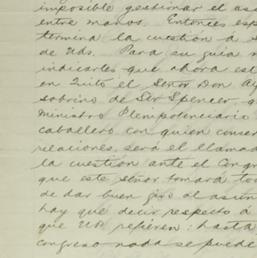 imposible gestionar el as
entre manos. Entonces esp
termina la cuestión a s
de Uds. Para su guia
indicarles que ahora est
en Quito el Señor Don
sobrino de Ser Spencer,
Ministro Plenipotenciario
caballero con quien conser
relaciones, será el llamad
la cuestión ante el Congr
que este señor tomará to
de dar buen giro al asun
hay que decir respecto á
que Uds. refieren: hasta
congreso nada se puede